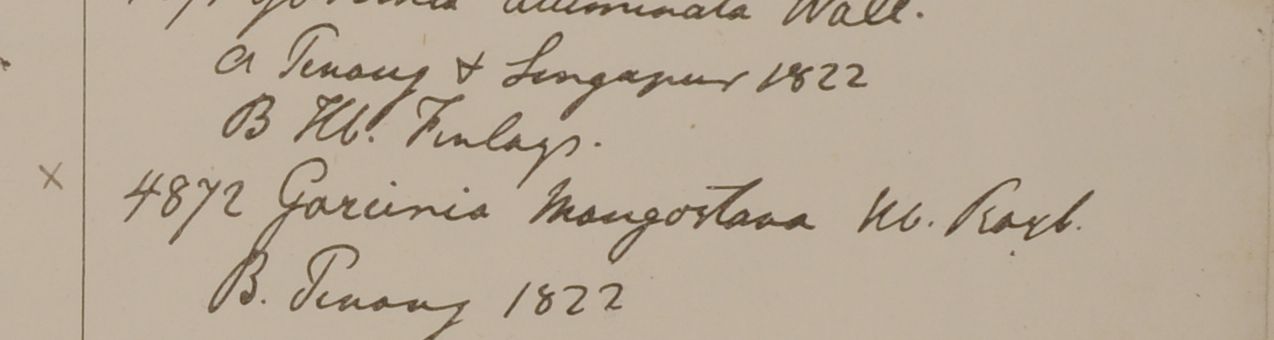 Garcinia acuminata Wall.
a Penang & Singapur 1822
B Hb. Finlays.
x 4872 Garcinia Mangostana Hb. Roxb.
B. Penang 1822